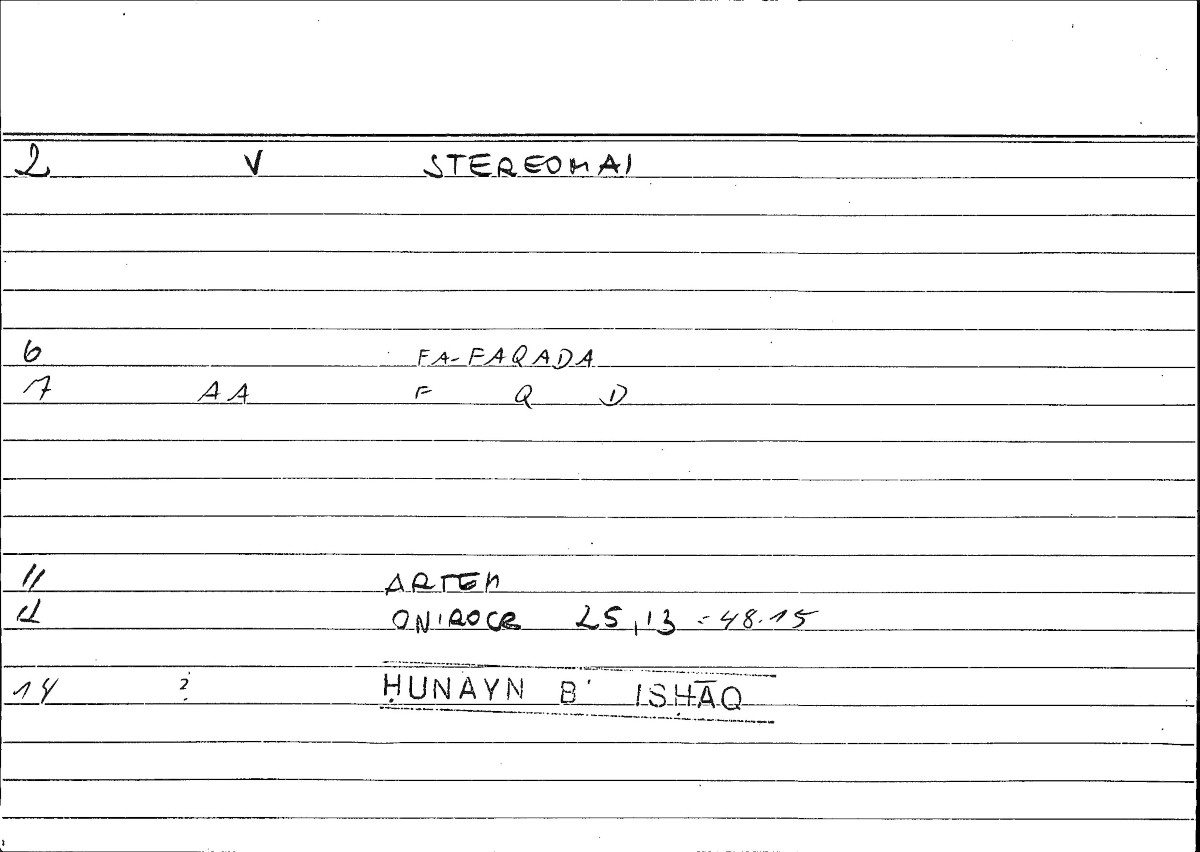 2 V STEREOMAI
6 FA-FAQADA
7 AA F Q D
11 ARTEM
12 ONIROCR 25,13 = 48.15
14 ? ḤUNAYN B' ISḤĀQ